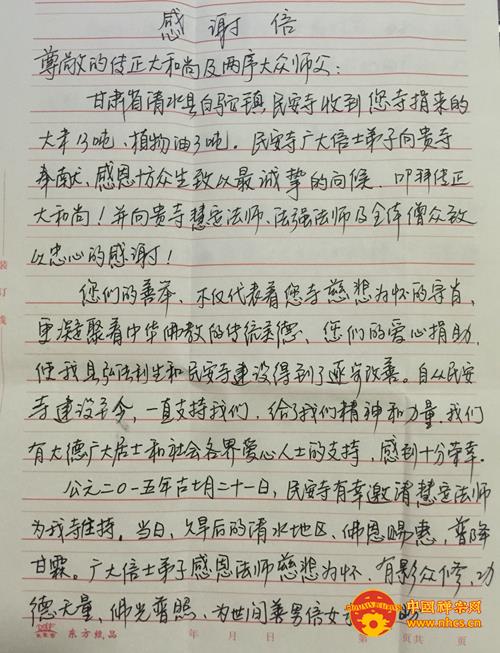 感谢信
尊敬的传正大和尚及两序大众师父：
甘肃省清水县白驼镇民安寺收到您寺捐来的
大米13吨，植物油3吨。民安寺广大信士弟子向贵寺
奉献、感恩十方众生致以最诚挚的问候。叩拜传正
大和尚！并向贵寺慧安法师、法强法师及全体僧众致
以忠心的感谢！
您们的善举、不仅代表着您寺慈悲为怀的宗旨，
更凝聚着中华佛教的传统美德、您们的爱心捐助，
使我县弘法利生和民安寺建设得到了逐步改善。自从民安
寺建设至今，一直支持我们，给了我们精神和力量，我们
有大德广大居士和社会各界爱心人士的支持，感到十分荣幸。
公元二〇一五年古七月二十一日，民安寺有幸邀请慧安法师
为我寺住持。当日，久旱后的清水地区，佛恩赐惠，普降
甘霖。广大信士弟子感恩法师慈悲为怀、有影众修，功
德无量，佛光普照，为世间善男信女
东方纸品
年 月 日
第 页共 页
装订线
中國禪宗网
www.nhcs.cn